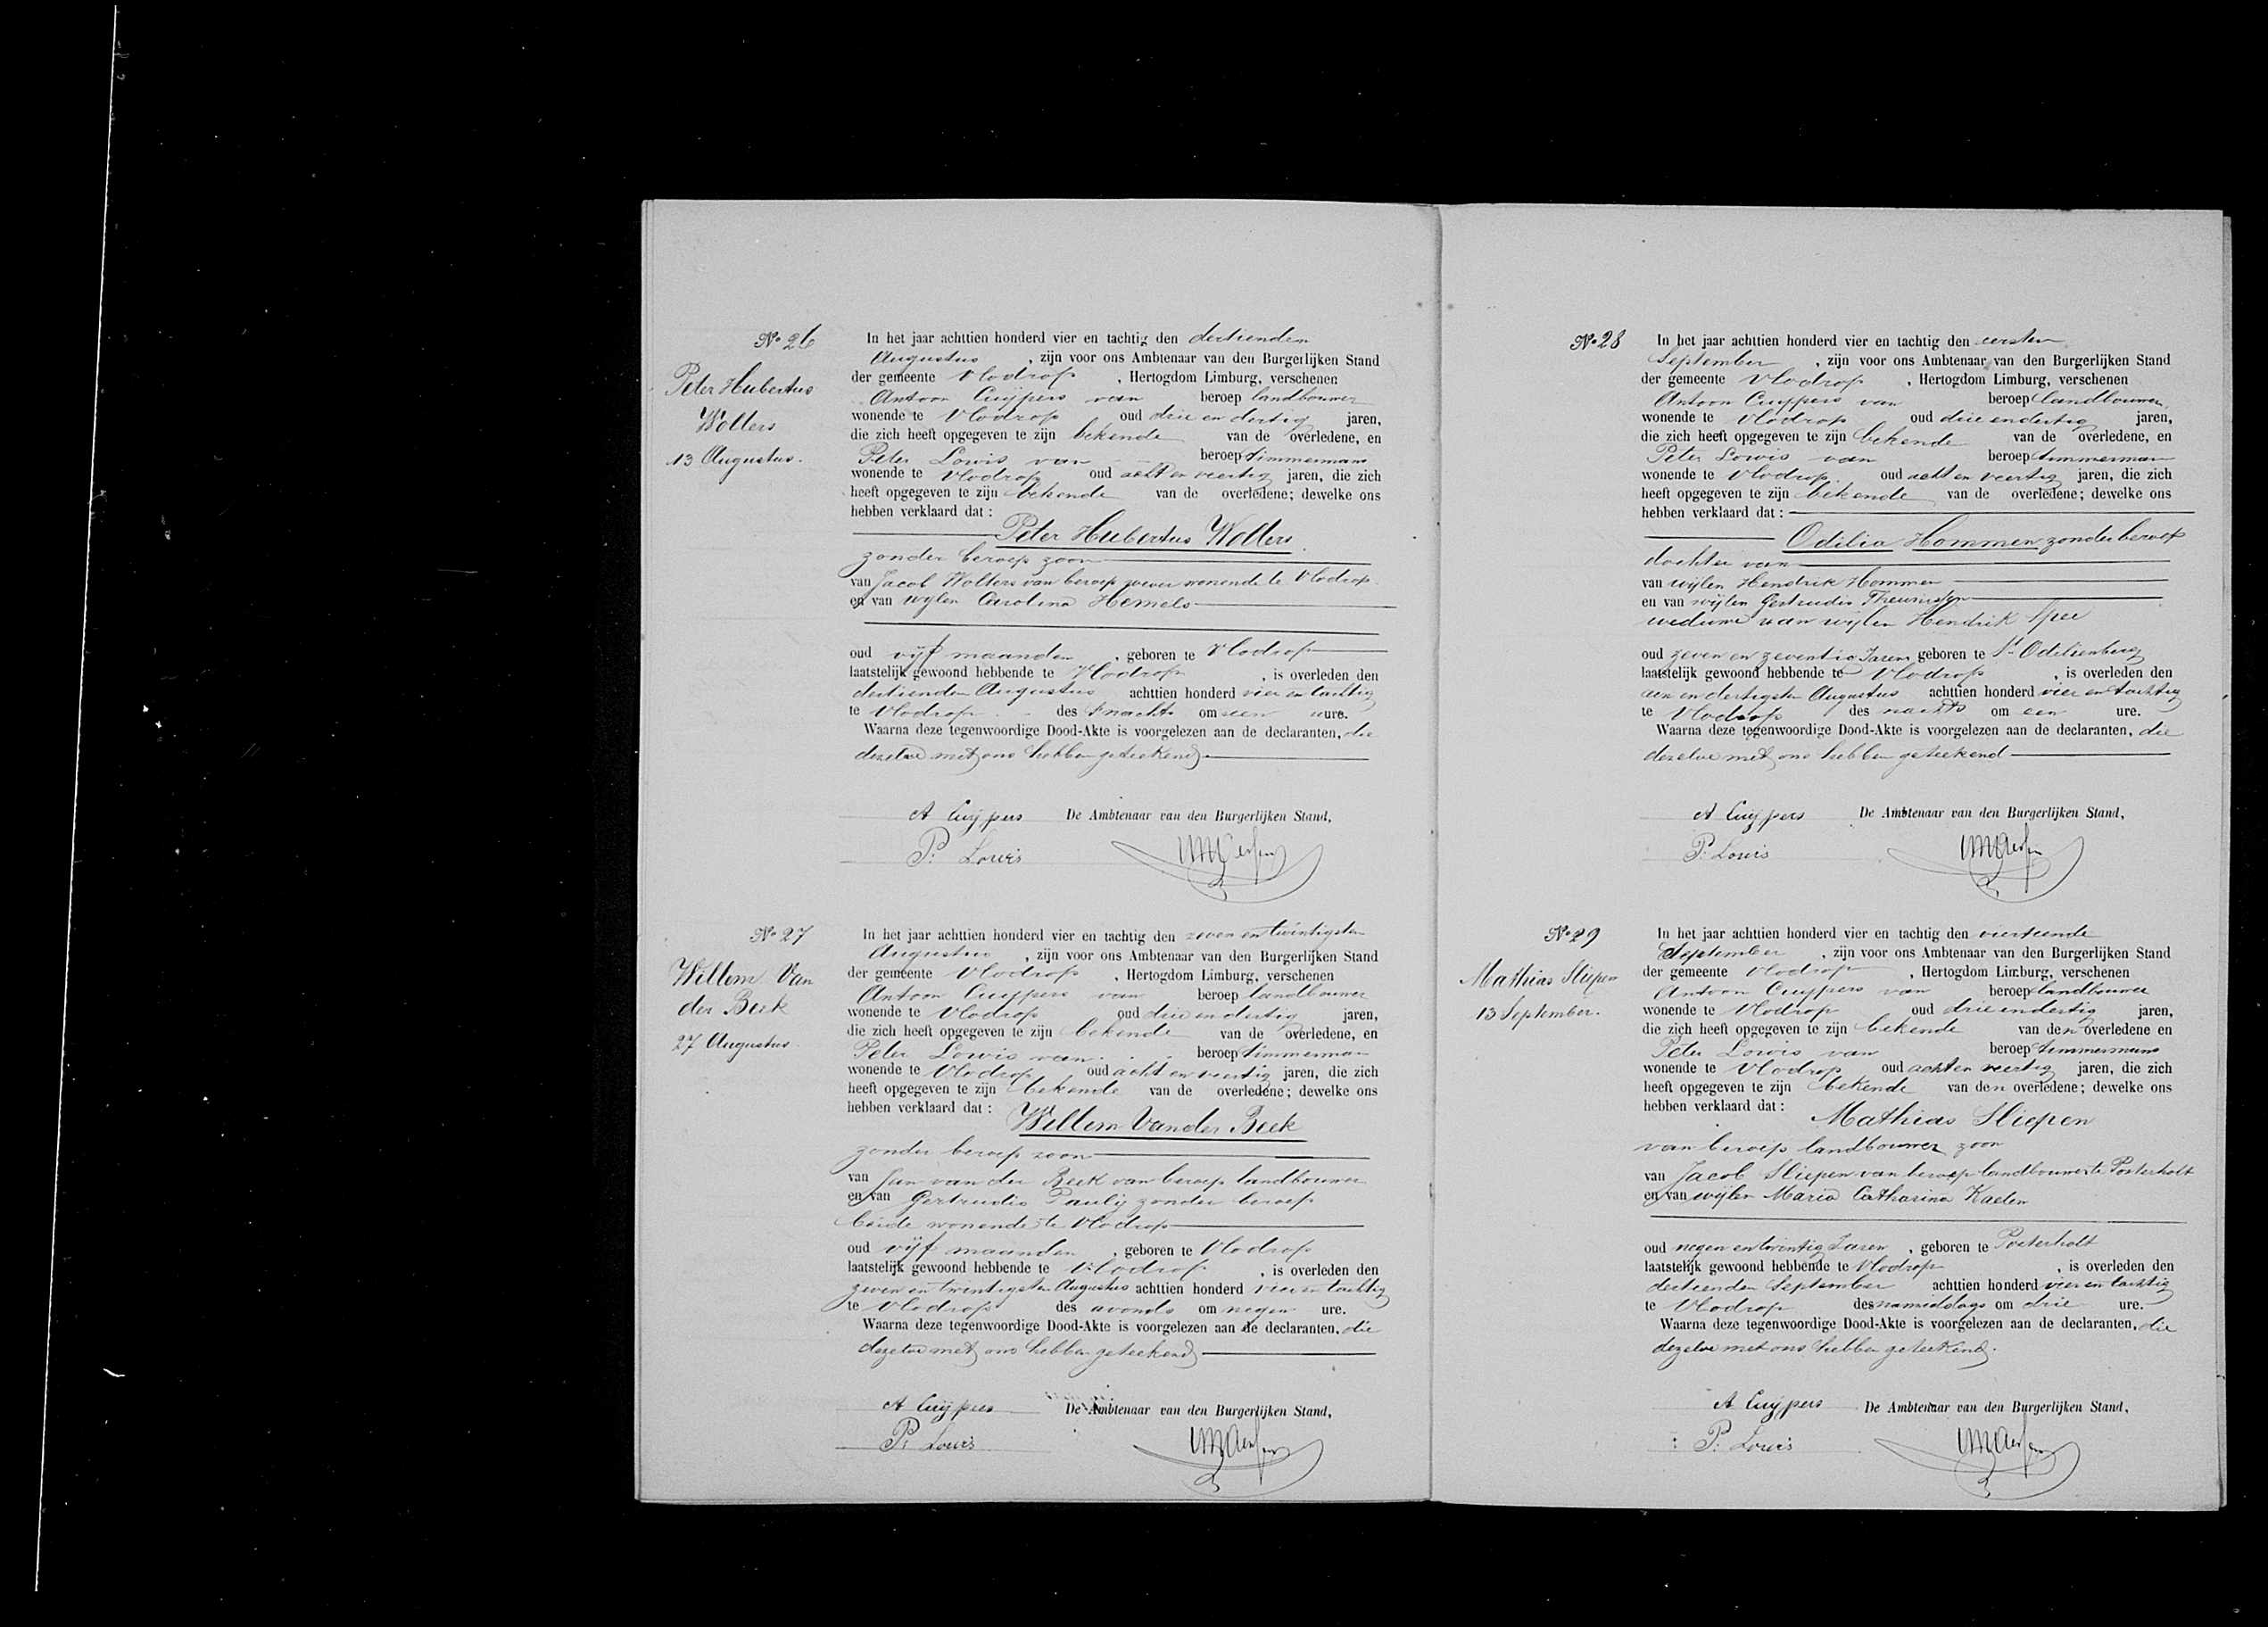 No 26
Peter Hubertus
Wolters
13 Augustus.
In het jaar achttien honderd vier en tachtig den dertienden
Augustus, zijn voor ons Ambtenaar van den Burgerlijken Stand
der gemeente Vlodrop, Hertogdom Limburg, verschenen
Antoon Cuijpers van beroep landbouwer
wonende te Vlodrop oud drie en dertig jaren,
die zich heeft opgegeven te zijn bekende van de overledene, en
Peter Lowis van beroep timmerman
wonende te Vlodrop oud acht en veertig jaren, die zich
heeft opgegeven te zijn bekende van de overledene; dewelke ons
hebben verklaard dat:
Peter Hubertus Wolters
zonder beroep zoon
van Jacob Wolters van beroep wever wonende te Vlodrop
en van wylen Carolina Hemels
oud vijf maanden, geboren te Vlodrop
laatstelijk gewoond hebbende te Vlodrop, is overleden den
dertienden Augustus achttien honderd vier en tachtig
te Vlodrop des nachts om een ure.
Waarna deze tegenwoordige Dood-Akte is voorgelezen aan de declaranten, die
dezelve met ons hebben geteekend
A Cuijpers De Ambtenaar van den Burgerlijken Stand,
P. Lowis
No 27
Willem Van
der Beek
27 Augustus
In het jaar achttien honderd vier en tachtig den zeven en twintigsten
Augustus, zijn voor ons Ambtenaar van den Burgerlijken Stand
der gemeente Vlodrop, Hertogdom Limburg, verschenen
Antoon Cuijpers van beroep landbouwer
wonende te Vlodrop oud drie en dertig jaren,
die zich heeft opgegeven te zijn bekende van de overledene, en
Peter Lowis van beroep timmerman
wonende te Vlodrop oud acht en veertig jaren, die zich
heeft opgegeven te zijn bekende van de overledene; dewelke ons
hebben verklaard dat:
Willem Vander Beek
zonder beroep zoon
van Jan van der Beek van beroep landbouwer
en van Gertrudis Paulij zonder beroep
beide wonende te Vlodrop
oud vijf maanden, geboren te Vlodrop
laatstelijk gewoond hebbende te Vlodrop, is overleden den
zeven en twintigsten Augustus achttien honderd vier en tachtig
te Vlodrop des avonds om negen ure.
Waarna deze tegenwoordige Dood-Akte is voorgelezen aan de declaranten, die
dezelve met ons hebben geteekend
A Cuijpers De Ambtenaar van den Burgerlijken Stand,
P. Lowis
No 28
In het jaar achttien honderd vier en tachtig den eersten
September, zijn voor ons Ambtenaar van den Burgerlijken Stand
der gemeente Vlodrop, Hertogdom Limburg, verschenen
Antoon Cuijpers van beroep landbouwer
wonende te Vlodrop oud drie en dertig jaren,
die zich heeft opgegeven te zijn bekende van de overledene, en
Peter Lowis van beroep timmerman
wonende te Vlodrop oud acht en veertig jaren, die zich
heeft opgegeven te zijn bekende van de overledene; dewelke ons
hebben verklaard dat:
Odilia Hommen zonder beroep
dochter van
van wijlen Hendrik Hommen
en van wijlen Gertrudis
weduwe van wijlen Hendrik Spee
oud zeven en zeventig Jaren geboren te St Odilienberg
laatstelijk gewoond hebbende te Vlodrop, is overleden den
een en dertigsten Augustus achttien honderd vier en tachtig
te Vlodrop des nachts om een ure.
Waarna deze tegenwoordige Dood-Akte is voorgelezen aan de declaranten, die
dezelve met ons hebben geteekend
A Cuijpers De Ambtenaar van den Burgerlijken Stand,
P. Lowis
No 29
Mathias Sliepen
13 September.
In het jaar achttien honderd vier en tachtig den viertiende
September, zijn voor ons Ambtenaar van den Burgerlijken Stand
der gemeente Vlodrop, Hertogdom Limburg, verschenen
Antoon Cuijpers van beroep landbouwer
wonende te Vlodrop oud drie en dertig jaren,
die zich heeft opgegeven te zijn bekende van den overledene en
Peter Lowis van beroep timmerman
wonende te Vlodrop oud acht en veertig jaren, die zich
heeft opgegeven te zijn bekende van den overledene; dewelke ons
hebben verklaard dat:
Mathias Sliepen
van beroep landbouwer zoon
van Jacob Sliepen van beroep landbouwer te Posterholt
en van wijlen Maria Catharina Kaelen
oud negen en twintig Jaren, geboren te Posterholt
laatstelijk gewoond hebbende te Vlodrop, is overleden den
dertienden September achttien honderd vier en tachtig
te Vlodrop des namiddags om drie ure.
Waarna deze tegenwoordige Dood-Akte is voorgelezen aan de declaranten, die
dezelve met ons hebben geteekend.
A Cuijpers De Ambtenaar van den Burgerlijken Stand,
P. Lowis